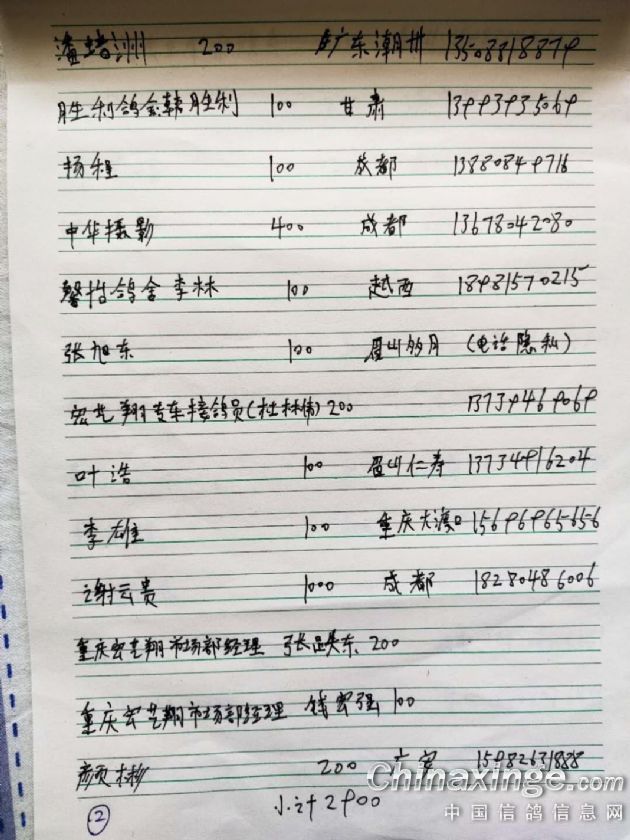 潘绪洲 200 广东潮州 13508818879
胜利鸽舍韩胜利 100 甘肃 13993935069
扬程 100 成都 13880849716
中华摄影 400 成都 13678042080
馨怡鸽舍 李林 100 越西 18981570215
张旭东 100 眉山 (电话隐私)
宏艺翔专车接鸽员(杜林伟) 200 13739469069
叶浩 100 眉山仁寿 13734916204
李雄 100 重庆大渡口 15696965656
谢云贵 1000 成都 18280486006
重庆宏艺翔市场部经理 张 东 200
重庆宏艺翔市场部经理 钱宏强 100
颜彬 200 广安 15982631888
② 小计2900
Chinaxinge.com
中国信鸽信息网